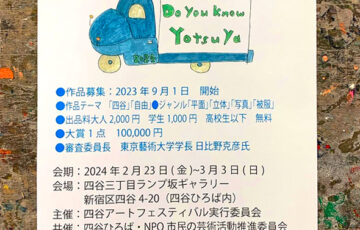 Do you know
Yotsuya
●作品募集：2023年9月1日　開始
●作品テーマ 「四谷」「自由」●ジャンル「平面」「立体」「写真」「被服」
●出品料大人2,000円　学生1,000円　高校生以下　無料
●大賞1点　100,000円
●審査委員長　東京藝術大学学長 日比野克彦氏
会期：2024年2月23日(金)~3月3日(日)
会場：四谷三丁目ランプ坂ギャラリー
新宿区四谷 4-20（四谷ひろば内）
主催：四谷アートフェスティバル実行委員会
共催：四谷ひろば・NPO市民の芸術活動推進委員会